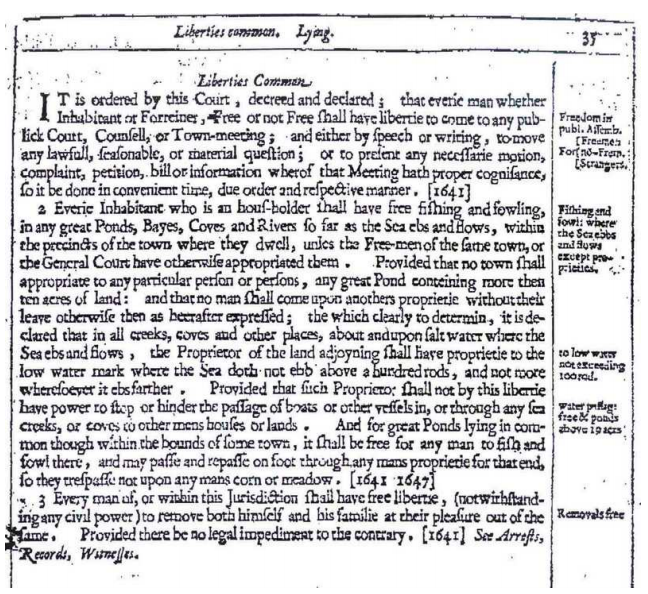 Liberties common. Lying. 35
Liberties Common
IT is ordered by this Court, decreed and declared; that everie man whether
Inhabitant or Forreiner, Free or not Free ſhall have libertie to come to any pub-
lick Court, Counſell, or Town-meeting; and either by ſpeech or writing, to move
any lawfull, ſeaſonable, or material queſtion; or to preſent any neceſſarie motion,
complaint, petition, bill or information wherof that Meeting hath proper cogniſance,
ſo it be done in convenient time, due order and reſpective manner. [1641]
2 Everie Inhabitant who is an houſ-holder ſhall have free fiſhing and fowling,
in any great Ponds, Bayes, Coves and Rivers ſo far as the Sea ebs and flows, within
the precincts of the town where they dwell, unles the Free-men of the ſame town, or
the General Court have otherwiſe appropriated them. Provided that no town ſhall
appropriate to any particular perſon or perſons, any great Pond conteining more then
ten acres of land: and that no man ſhall come upon anothers proprietie without their
leave otherwiſe then as heerafter expreſſed; the which clearly to determin, it is de-
clared that in all creeks, coves and other places, about and upon ſalt water where the
Sea ebs and flows, the Proprietor of the land adjoyning ſhall have proprietie to the
low water mark where the Sea doth not ebb above a hundred rods, and not more
whereſoever it ebs farther. Provided that ſuch Proprietor ſhall not by this libertie
have power to ſtop or hinder the paſſage of boats or other veſſels in, or through any ſea
creeks, or coves to other mens houſes or lands. And for great Ponds lying in com-
mon though within the bounds of ſome town, it ſhall be free for any man to fiſh and
fowl there, and may paſſe and repaſſe on foot through any mans proprietie for that end,
ſo they treſpaſſe not upon any mans corn or meadow. [1641 1647]
3 Every man of, or within this Jurisdiction ſhall have free libertie, (notwithſtand-
ing any civil power) to remove both himſelf and his familie at their pleaſure out of the
ſame. Provided there be no legal impediment to the contrary. [1641] See Arreſts,
Records, Witneſſes.
Freedom in
publ. Aſſemb.
[Freemen
For[nō-Frem.
[Strangers.
Fiſhing and
fowl: where
the Sea ebbs
and flows
except pro-
prieties.
to low water
not exceeding
100 rod.
water paſſag:
free & ponds
above 10 acrs
Removals free